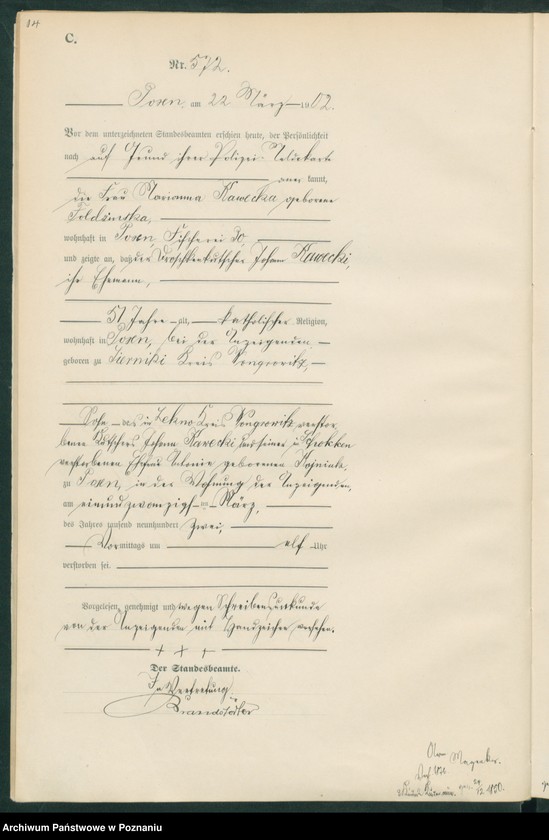 14
C.
Nr. 572.
Posen, am 22 März 1902.
Vor dem unterzeichneten Standesbeamten erschien heute, der Persönlichkeit
nach auf Grund ihrer Polizei-Meldekarte
anerkannt,
die Frau Marianna Kawecka geborene
wohnhaft in Posen, Fischerei 30,
und zeigte an, daß der Droschkenkutscher Johann Kawecki,
ihr Ehemann,
51 Jahre alt, katholischer Religion,
wohnhaft in Posen, bei der Anzeigenden
geboren zu Kreis Wongrowitz,
Sohn des in Kreis Wongrowitz verstor
benen Kutschers Johann Kawecki und seiner in Schokken
verstorbenen Ehefrau geborenen
zu Posen, in der Wohnung der Anzeigenden,
am einundzwanzigsten März,
des Jahres tausend neunhundert zwei,
Vormittags um elf Uhr
verstorben sei.
Vorgelesen, genehmigt und wegen Schreibensunkunde
von der Anzeigenden mit Handzeichen versehen.
+ + +
Der Standesbeamte.
In Vertretung
Archiwum Państwowe w Poznaniu